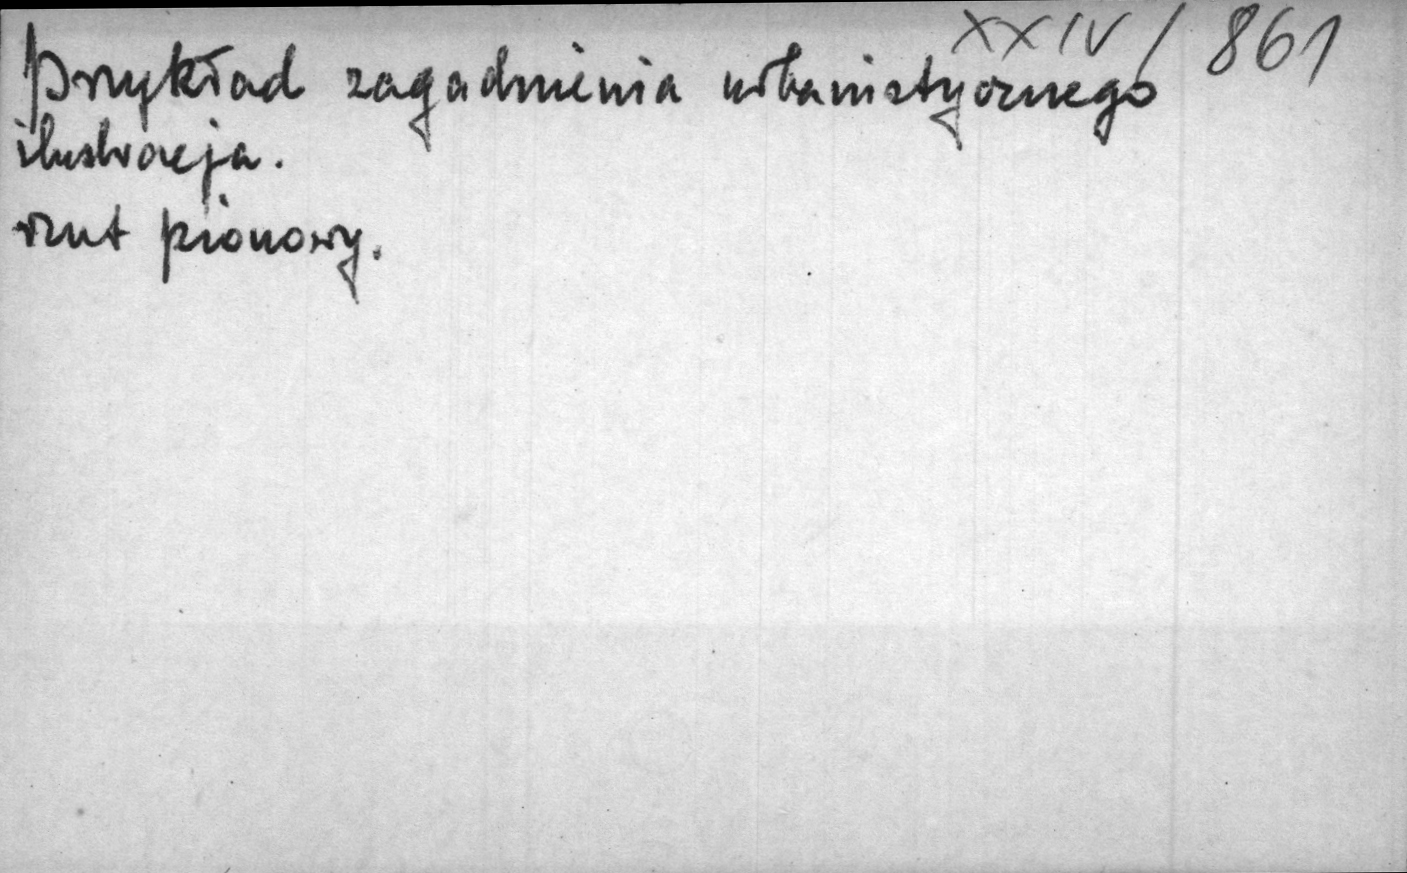 XXIV/861
Przykład zagadnienia urbanistycznego
ilustracja.
rzut pionowy.